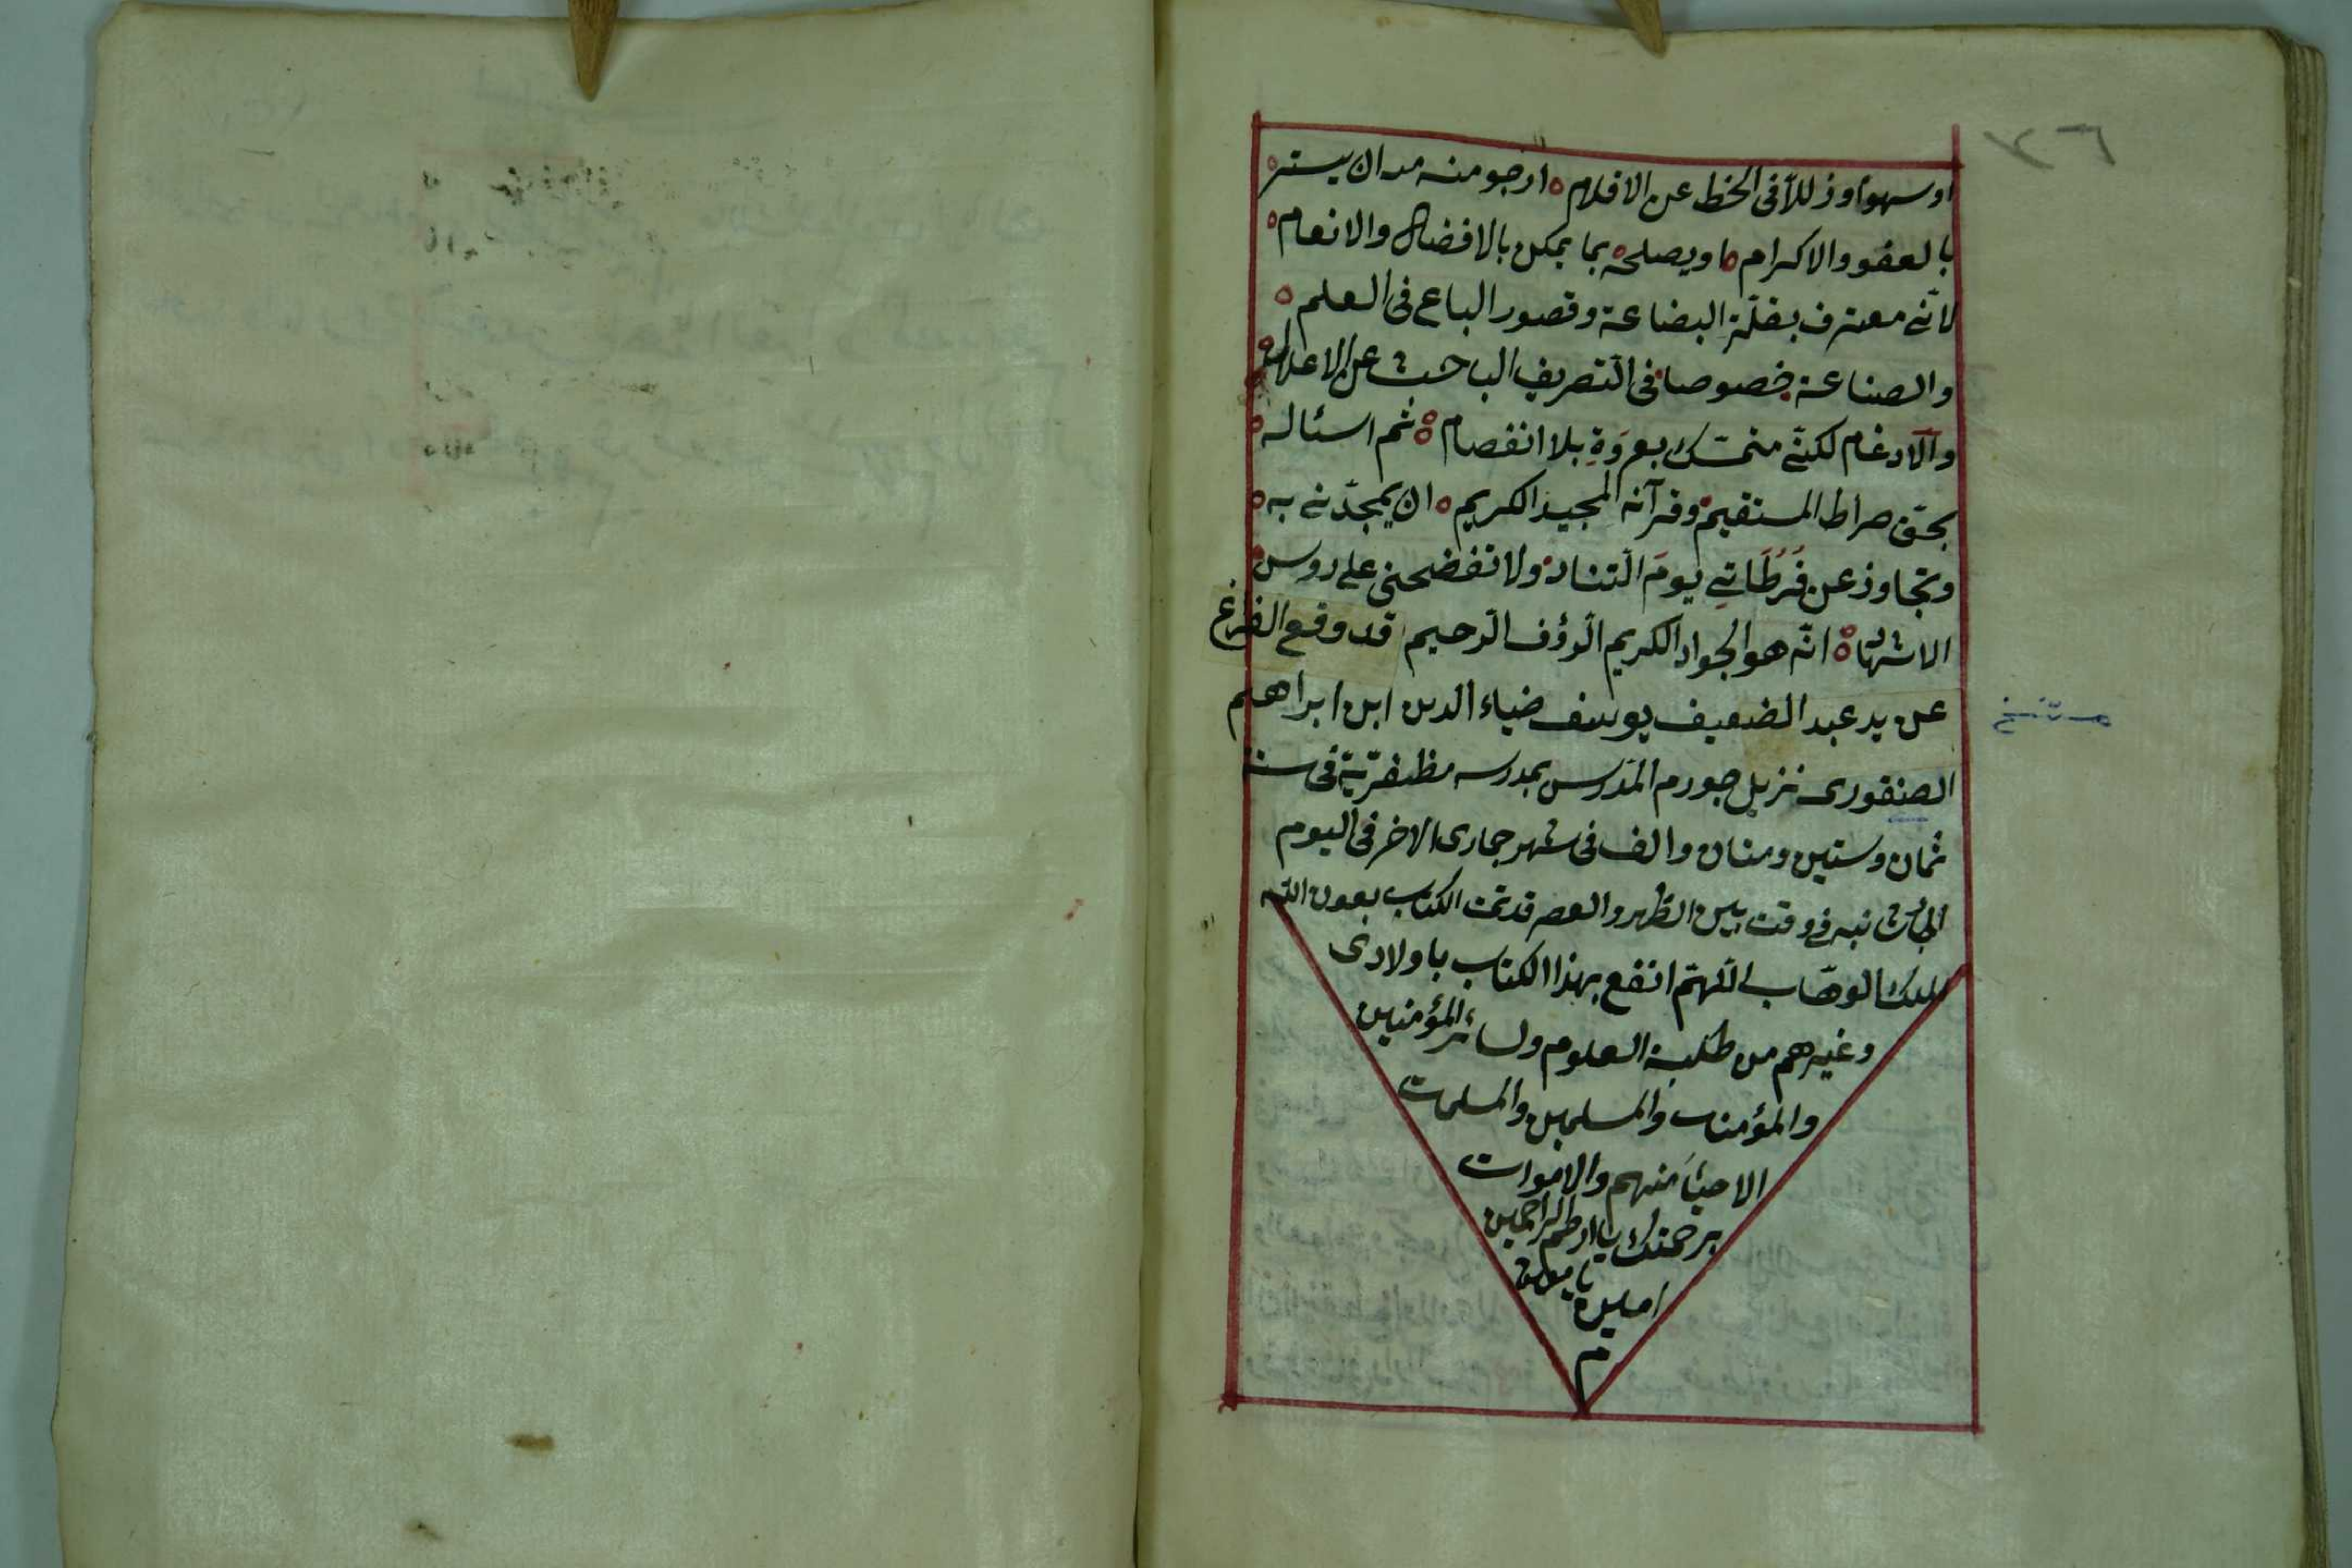 ٣٦٧
او سهوا وزللا فى الخط عن الاقلام ارجو منه مد ان يستر
بالعفو والاكرام او يصلحه بما يمكن بالافضال والانعام
لانّى معترف بقلّة البضاعة وقصور الباع فى العلم
والصناعة خصوصا فى التصريف الباحث عن الاعلال
والادغام لكنّى متمسّك بعروَةٍ بلا انفصام ثم اسئاله
بحقّ صراط المستقيم وقرآنه المجيد الكريم ان يمجدّنى به
وتجاوز عن فَرَطَاتِى يومَ التناد ولا تفضحنى على روس
الاشهاد انّه هو الجواد الكريم الرؤف الرحيم قد وقع الفراغ
عن يد عبد الضعيف يوسف ضياء الدين ابن ابراهيم
الصنقورى نزيل جورم المدّرس بمدرسه مظفّريّة فى سنة
ثمان وستين ومئتان والف فى شهر جمادى الاخر فى اليوم
فى وقت بين الظهر والعصر قد تمت الكتاب بعون الله
الملك الوهّاب اللّهمّ انفع بهذا الكتاب باولادى
وغيرهم من طلبة العلوم ولسائر المؤمنين
والمؤمنات والمسلمين والمسلمات
الاحياَء منهم والاموات
برحمتك يا ارحم الراحمين
امين يا معين
م